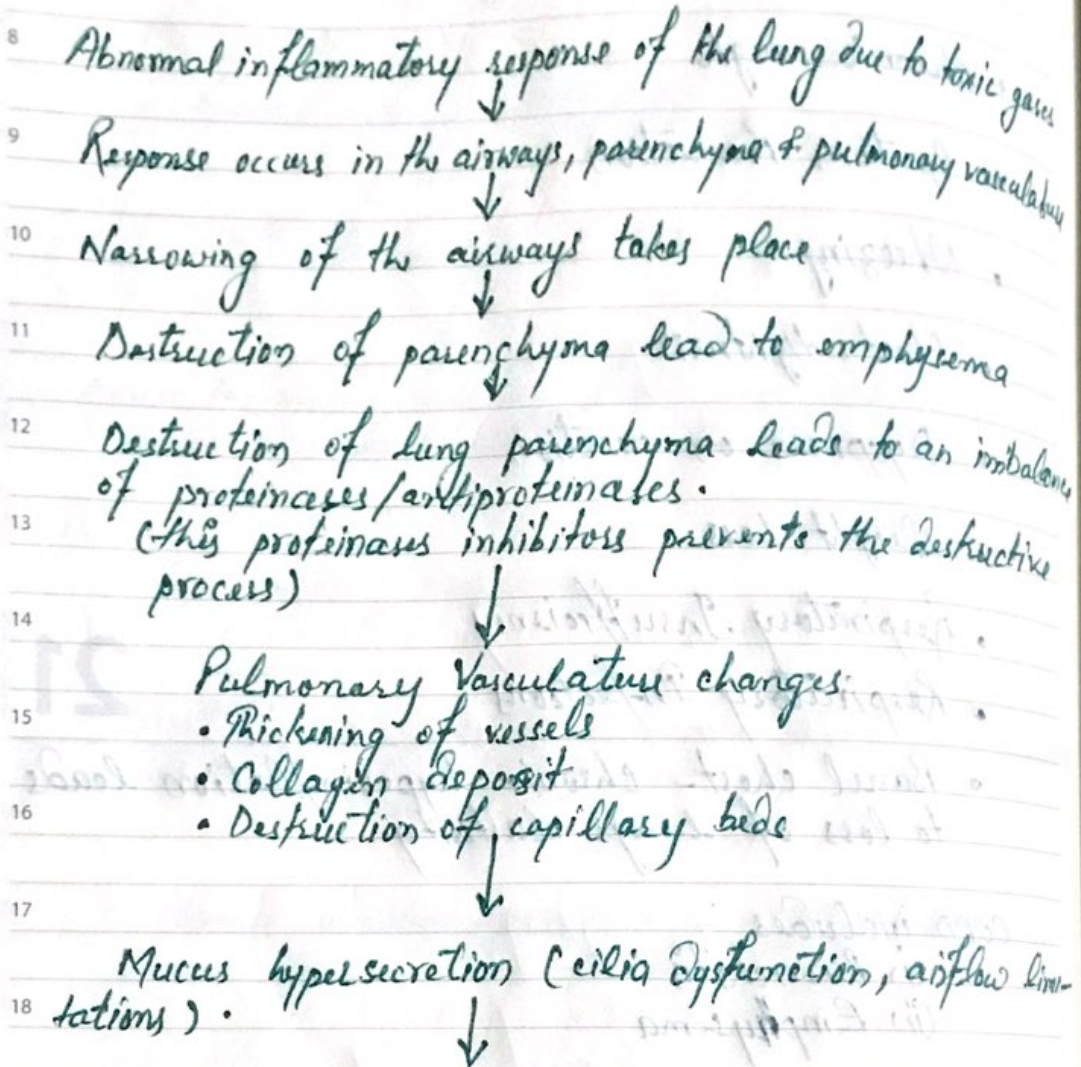 8 Abnormal inflammatory response of the lung due to toxic gases
↓
9 Response occurs in the airways, parenchyma & pulmonary vasculature
↓
10 Narrowing of the airways takes place
↓
11 Destruction of parenchyma lead to emphysema
↓
12 Destruction of lung parenchyma leads to an imbalance
of proteinases/antiproteinases.
13 (this proteinases inhibitors prevents the destructive
process)
↓
14
Pulmonary Vasculature changes
15 • Thickening of vessels
• Collagen deposit
16 • Destruction of capillary beds
↓
17
Mucus hypersecretion (cilia dysfunction, airflow limi-
18 tations).
↓
21